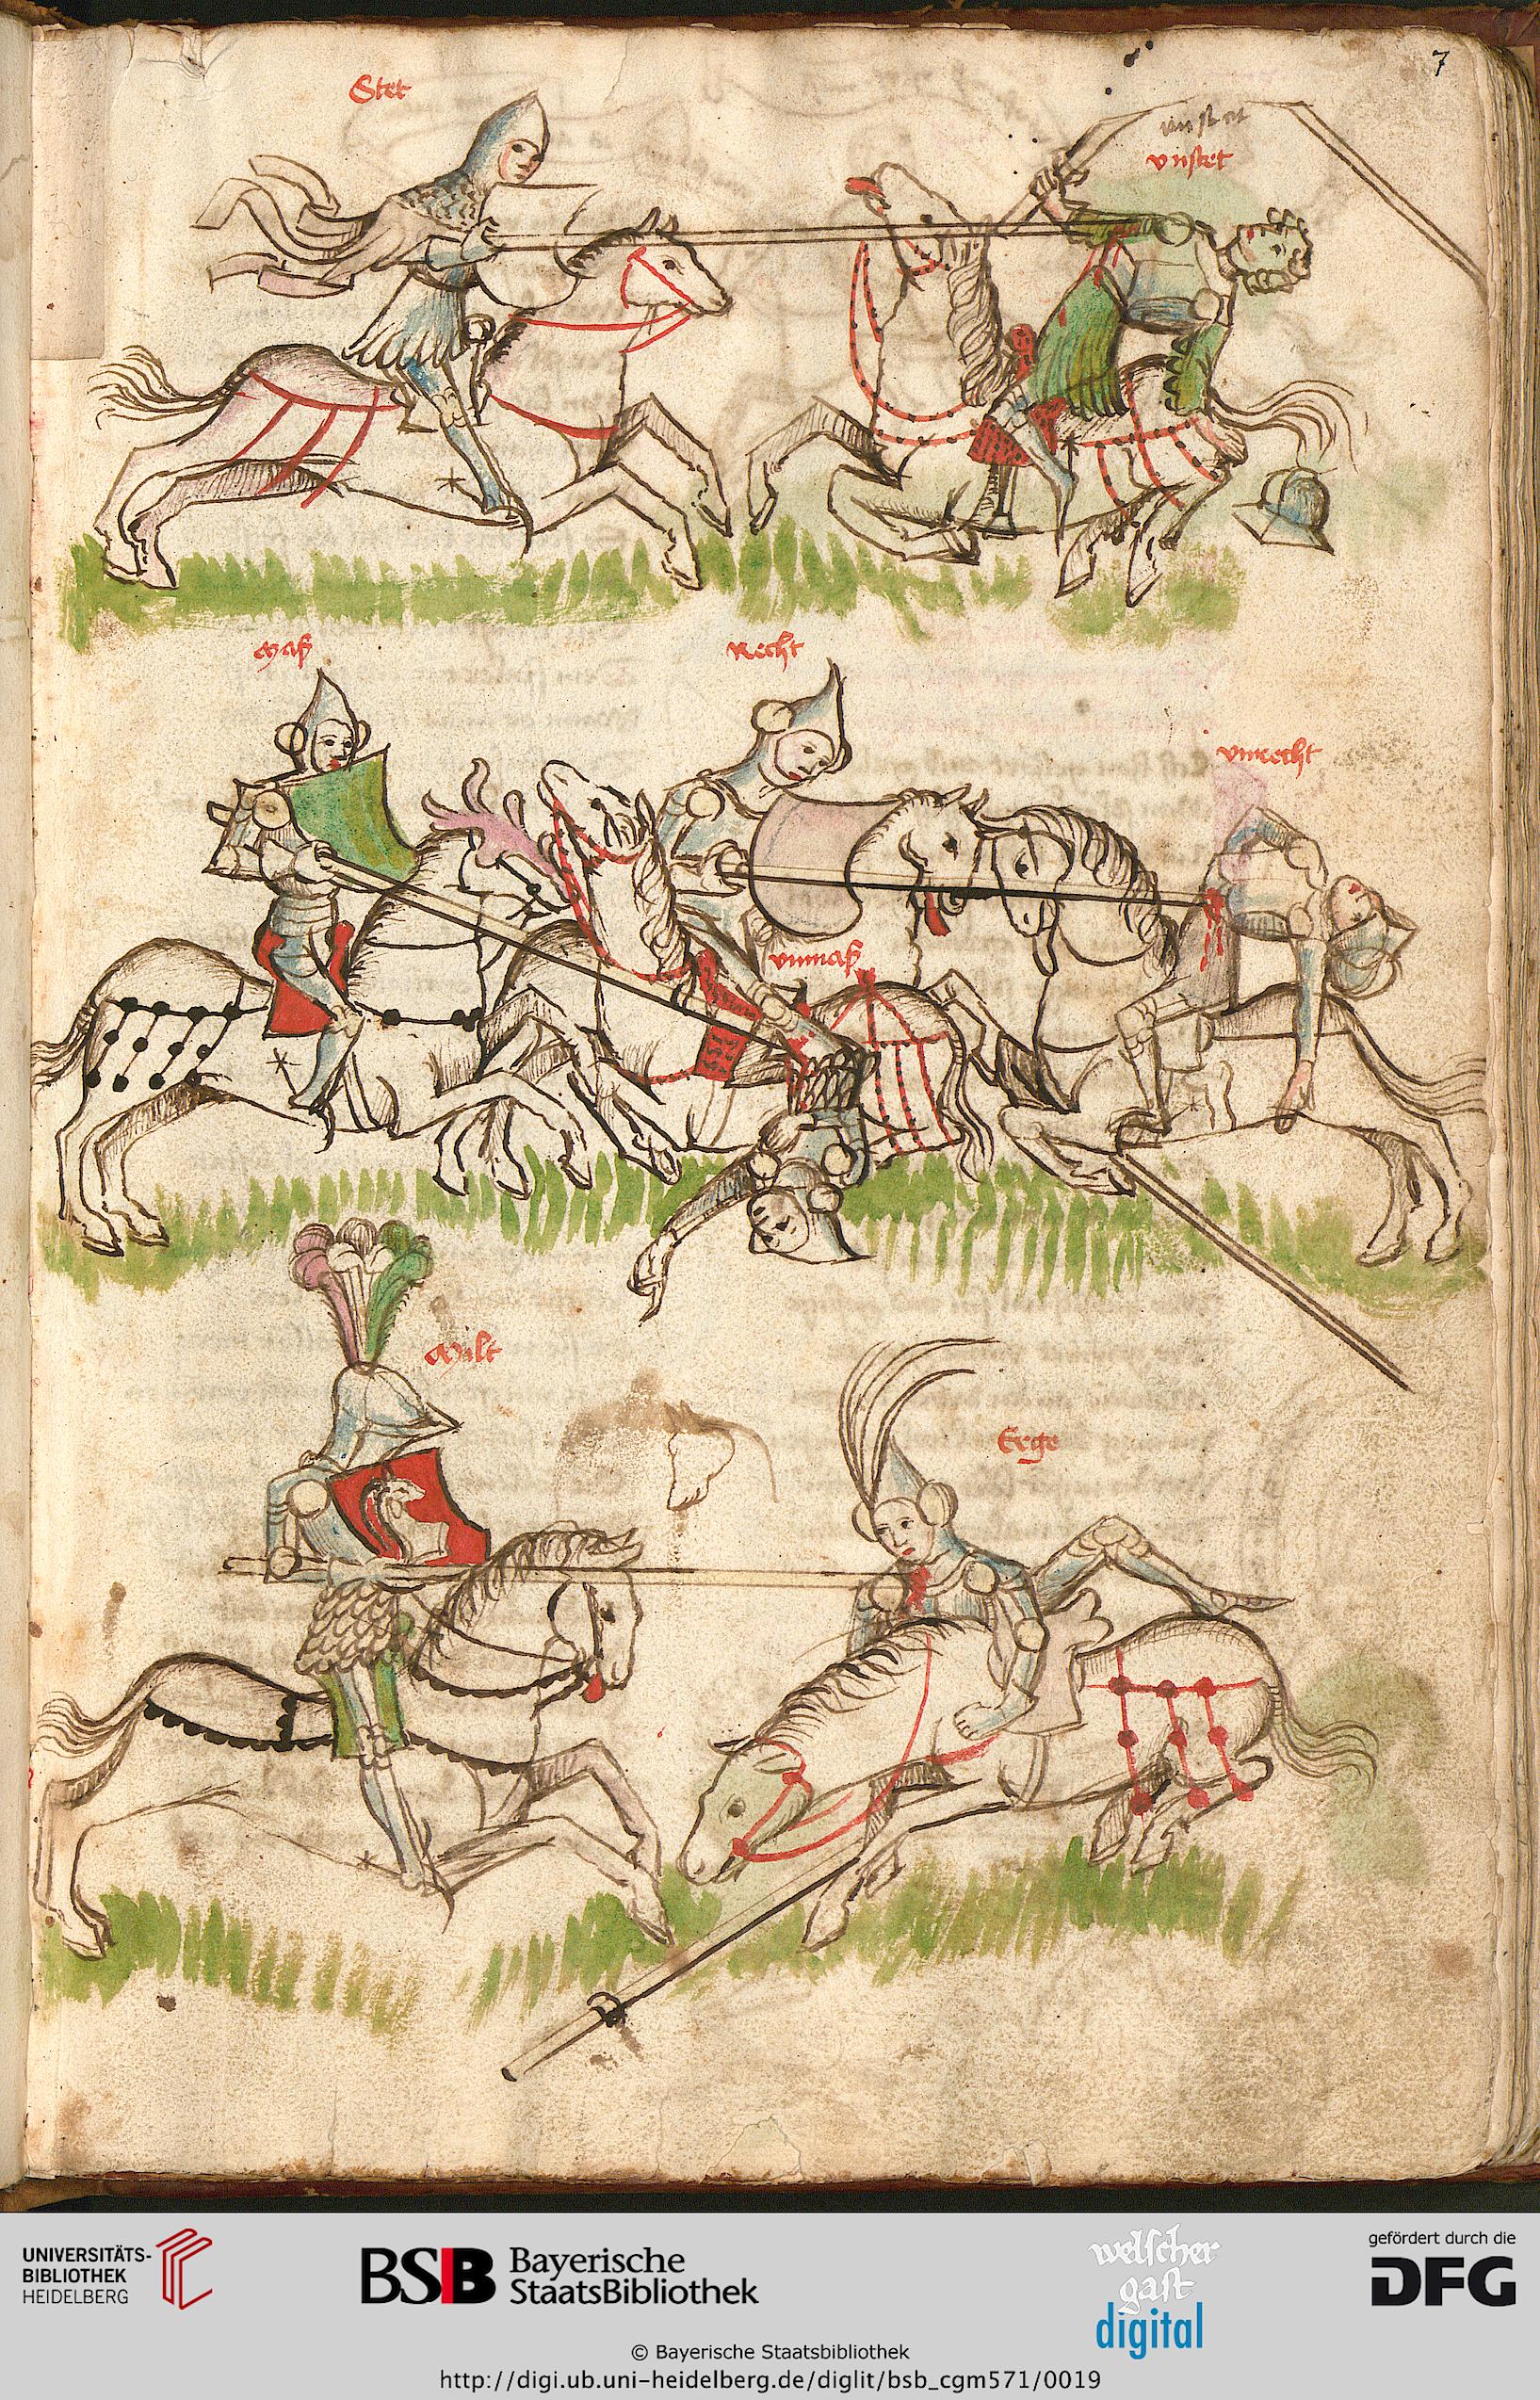 7
Stet
unstet
vnstet
Maß
Recht
vnrecht
vnmaß
Milt
Erge
UNIVERSITÄTS-
BIBLIOTHEK
HEIDELBERG
BSB Bayerische
StaatsBibliothek
welscher
gast
digital
gefördert durch die
DFG
© Bayerische Staatsbibliothek
http://digi.ub.uni-heidelberg.de/diglit/bsb_cgm571/0019